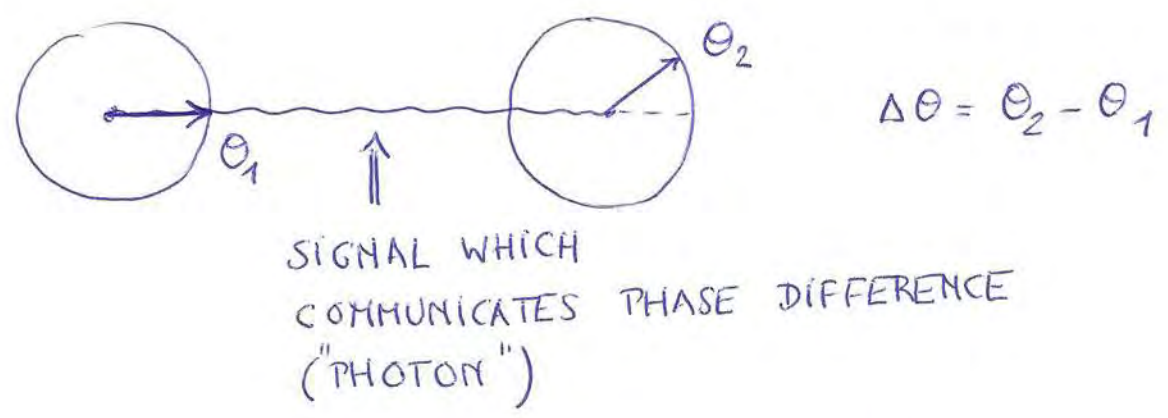 θ₂
Δθ = θ₂ - θ₁
θ₁
SIGNAL WHICH
COMMUNICATES PHASE DIFFERENCE
("PHOTON")